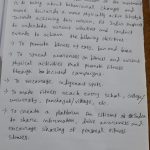 is to bring about behavioural change and
move towards a more physically active lifestyle.
Towards achieving this mission, Fit India proposes
to undertake various initiatives and conduct
events to achieve the following objectives:
• To promote fitness as easy, fun and free.
• To spread awareness on fitness and various
physical activities that promote fitness
through focused campaigns.
• To encourage indigenous sports.
• To make fitness reach every school, college/
university, panchayat/village, etc.
• To create a platform for citizens of India
to share information, drive awareness and
encourage sharing of personal fitness
stories.